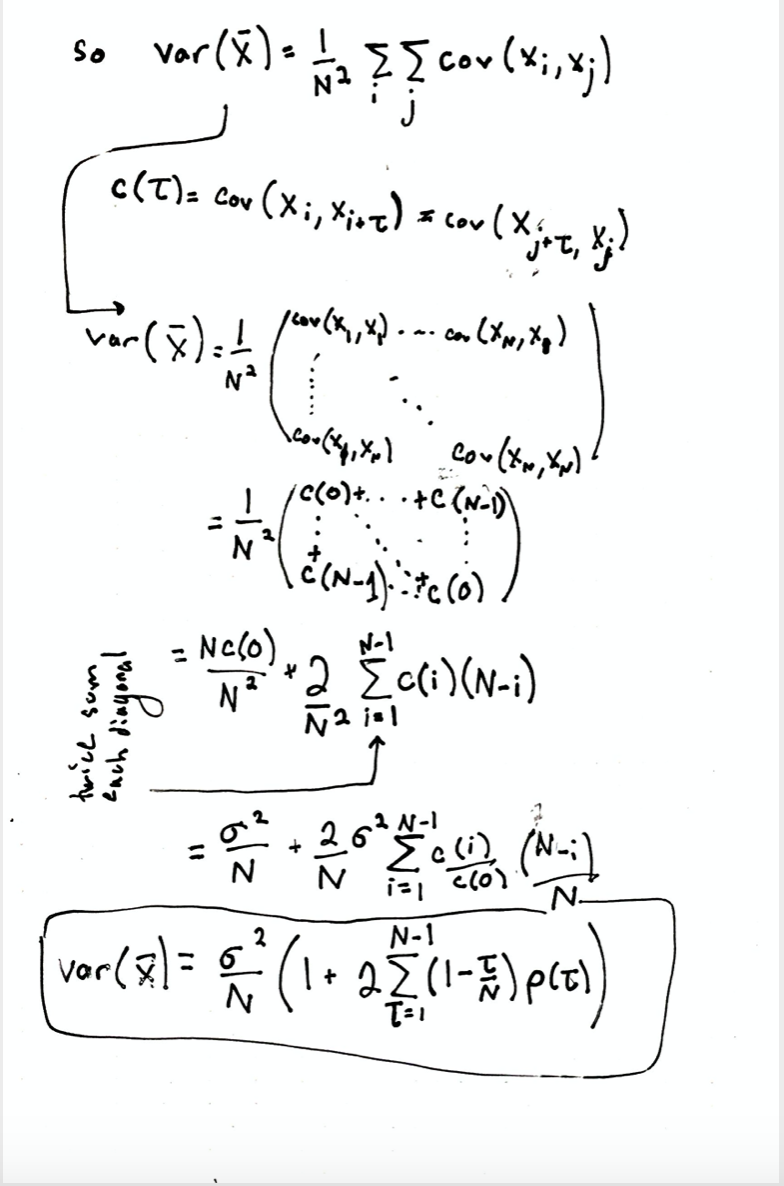 so var(x̄) = 1/N² Σ_i Σ_j cov(x_i, x_j)
c(τ) = cov(x_i, x_{i+τ}) = cov(x_{j+τ}, x_j)
var(x̄) = 1/N² ( cov(x_1, x_1) ... cov(x_N, x_1)
cov(x_1, x_N) cov(x_N, x_N) )
= 1/N² ( c(0) + ... + c(N-1)
+ c(N-1) ... + c(0) )
= Nc(0)/N² + 2/N² Σ_{i=1}^{N-1} c(i)(N-i)
twice sum
each diagonal
= σ²/N + 2σ²/N Σ_{i=1}^{N-1} c(i)/c(0) (N-i)/N
var(x̄) = σ²/N (1 + 2 Σ_{τ=1}^{N-1} (1 - τ/N) ρ(τ))